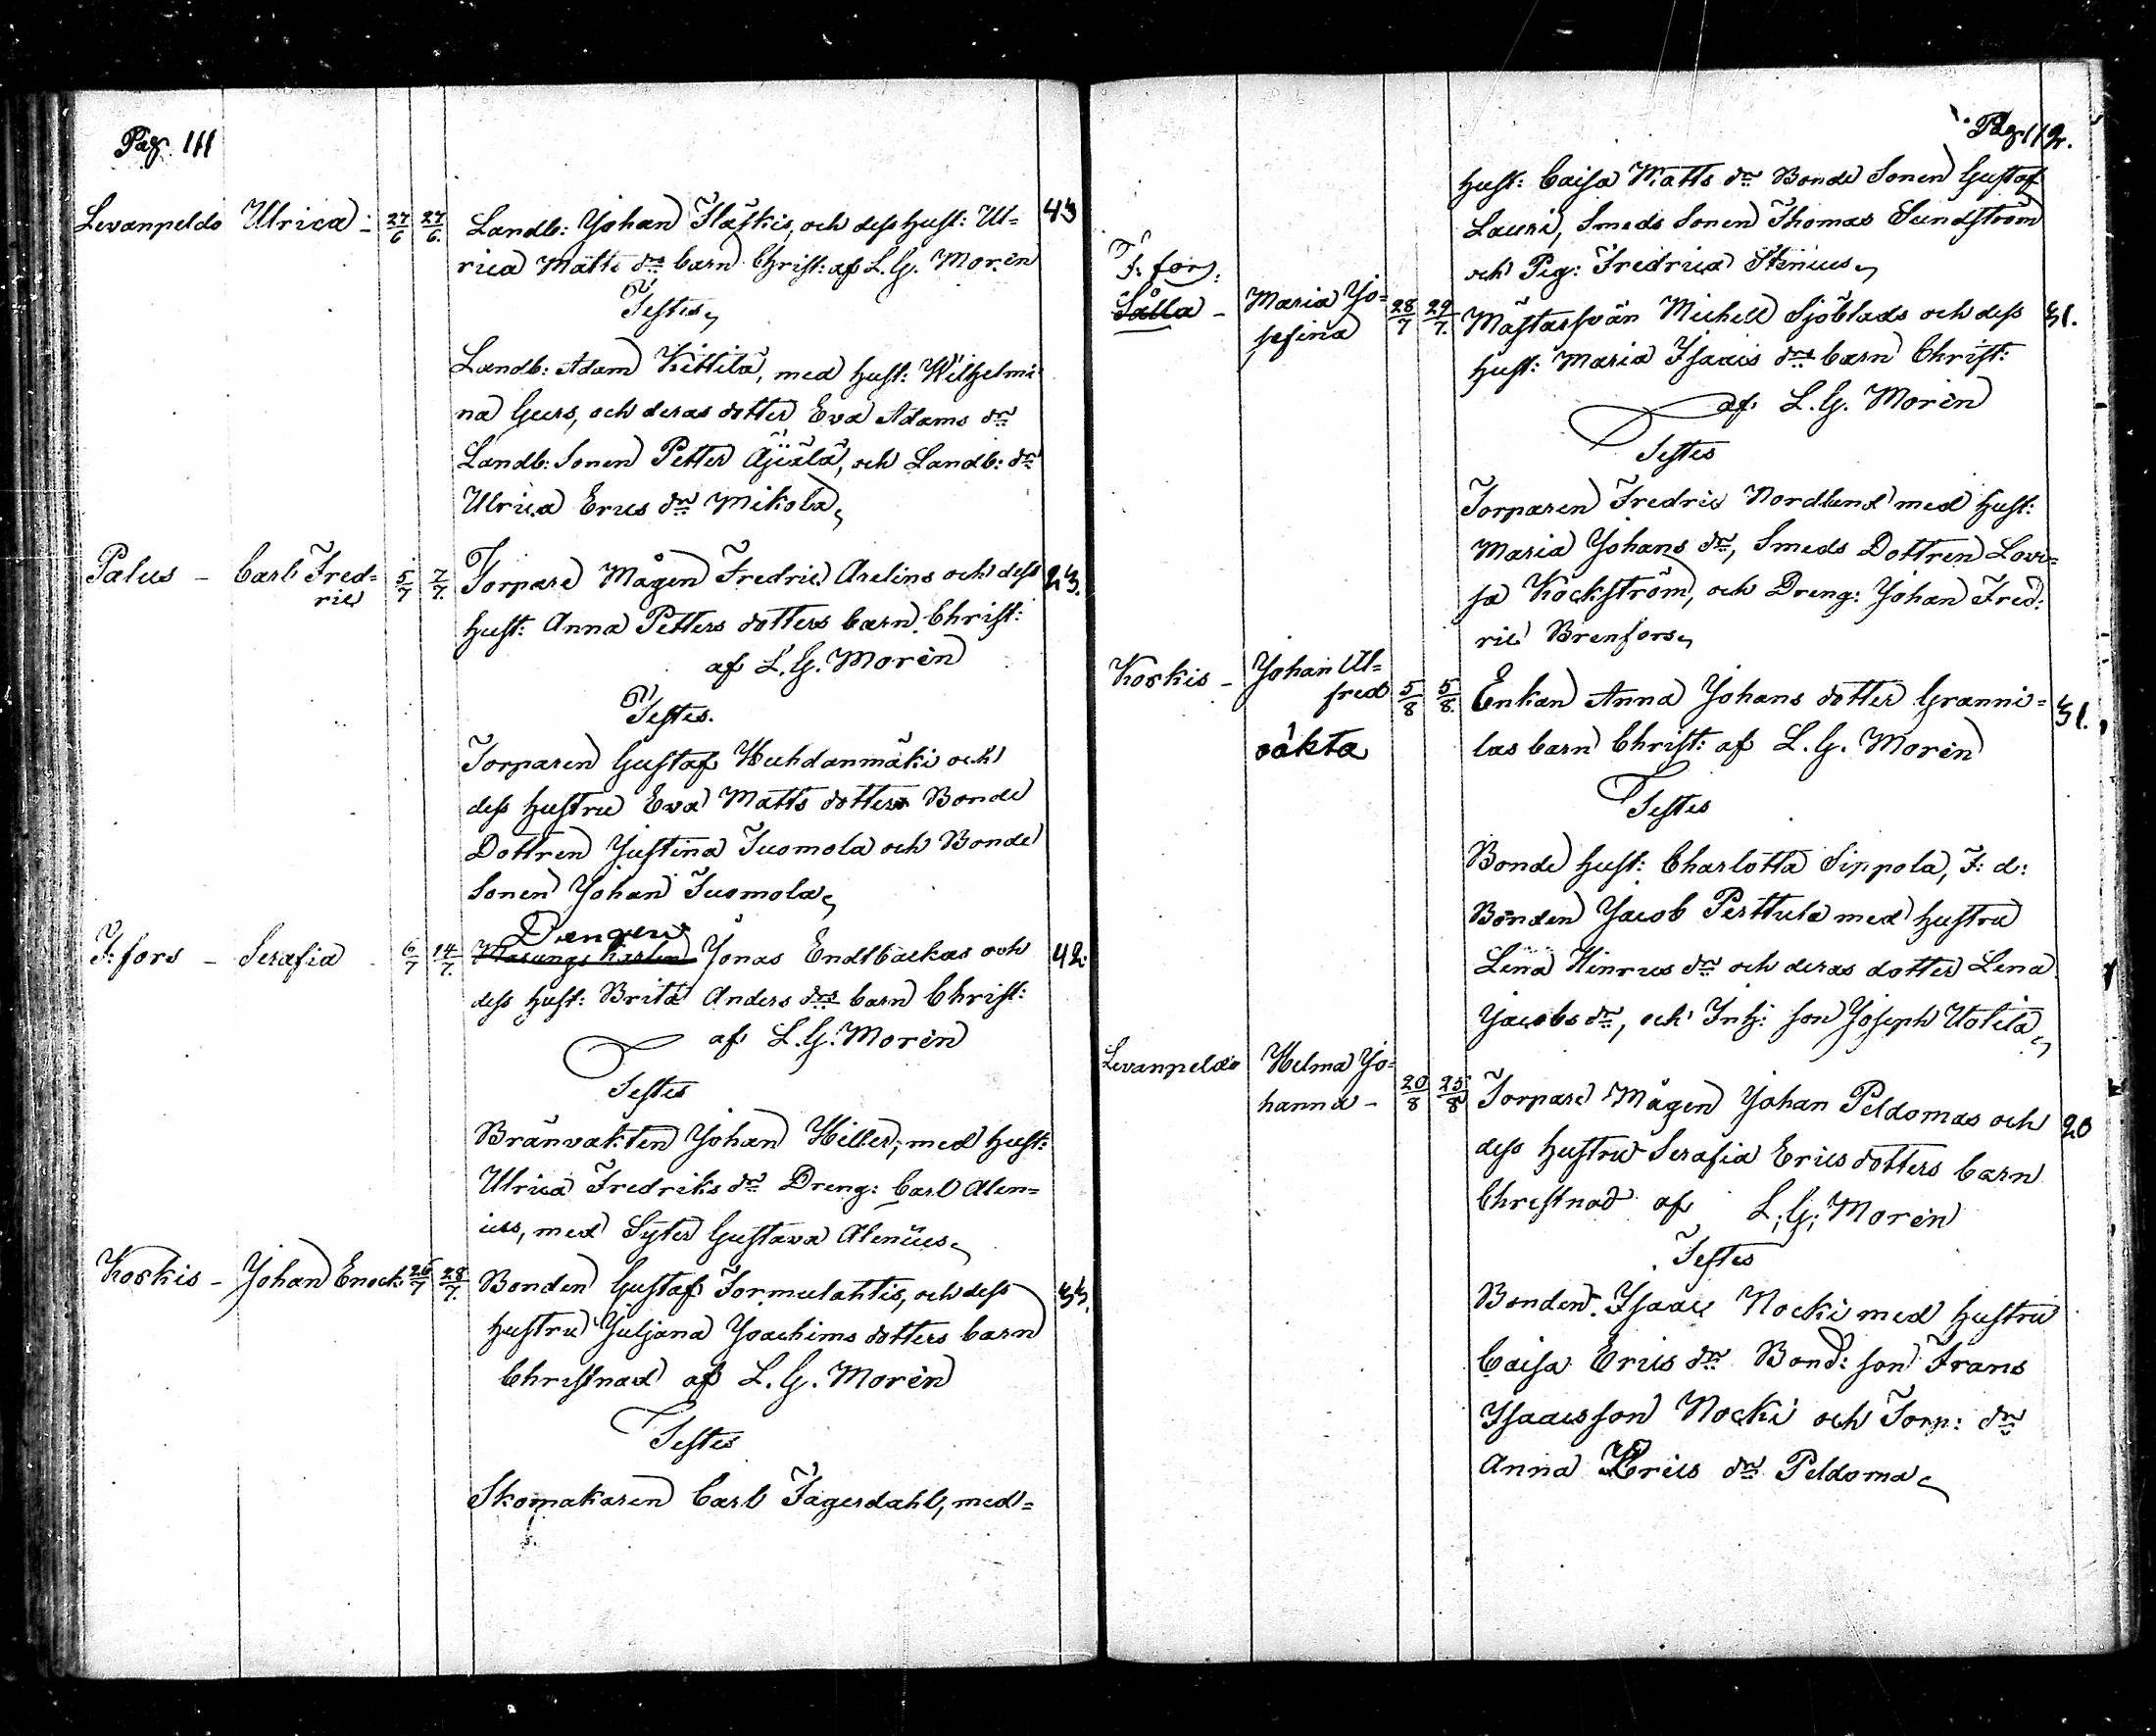 Pag. 111
Levanpeldo Ulrica - 27/6 27/6. Landb: Johan Fläskis, och dess Hust: Ul= 43
rica Matts dr barn Christ: af L. G. Morén
Testes,
Landb: Adam Kittilä, med Hust: Wilhelmi
na Gers, och deras dotter Eva Adams dr
Landb: Sonen Petter Äjälä, och Landb: dr
Ulrica Erics dr Mikola,
Palus - Carl Fred= 5/7 7/7. Torpare Mågen Fredric Arelins och dess 23.
ric
Hust: Anna Petters dotters barn Christ:
af L. G. Morén
Testes.
Torparen Gustaf Huhdanmäki och
dess Hustru Eva Matts dotter Bonde
Dottren Justina Tuomola och Bonde
Sonen Johan Tuomola,
Drengen
F: fors - Serafia - 6/7 14/7. Masungs Karlen Jonas Endtbackas och 42.
dess Hust: Brita Anders drs barn Christ:
af L. G. Morén
Testes
Bränvakten Johan Hiller, med Hust:
Ulrica Fredriks dr Dreng: Carl Alen=
ius, med Syster Gustava Alenius,
Koskis - Johan Enock 26/7 28/7. Bonden Gustaf Tormulahtis, och dess 33.
Hustru Juljana Joachims dotters barn
Christnad af L. G. Morén
Testes
Skomakaren Carl Fagerdahl, med=
Pag. 112.
Hust: Caisa Matts dr Bonde Sonen Gustaf
Lauri, Smeds Sonen Thomas Sundström
och Pig: Fredrica Stenius,
F: fors.
Sålla - Maria Jo= 28/7 29/7. Mästarsvän Michell Sjöblads och dess 31.
sefina
Hust: Maria Isaacs drs barn Christ:
af L. G. Morén
Testes
Torparen Fredric Nordlund med Hust:
Maria Johans dr, Smeds Dottren Lovi=
sa Kockström, och Dreng: Johan Fred:
ric Brenfors,
Koskis - Johan Al=
fred 5/8 5/8. Enkan Anna Johans dotter Granni= 31.
oäkta
las barn Christ: af L. G. Morén
Testes
Bonde Hust: Charlotta Sippola, F: d:
Bonden Jacob Perttula med Hustru
Lena Hinrics dr och deras dotter Lena
Jacobs dr, och Inh: son Joseph Uotila,
Levanpeldo Helma Jo=
hanna - 20/8 25/8 Torpare Mågen Johan Peldomas och 20
dess Hustru Serafia Erics dotters barn
Christnad af L. G. Morén
Testes
Bonden Isaac Nocki med Hustru
Caisa Erics dr Bond: son Frans
Isaacsson Nocki och Torp: dr
Anna Erics dr Peldoma,